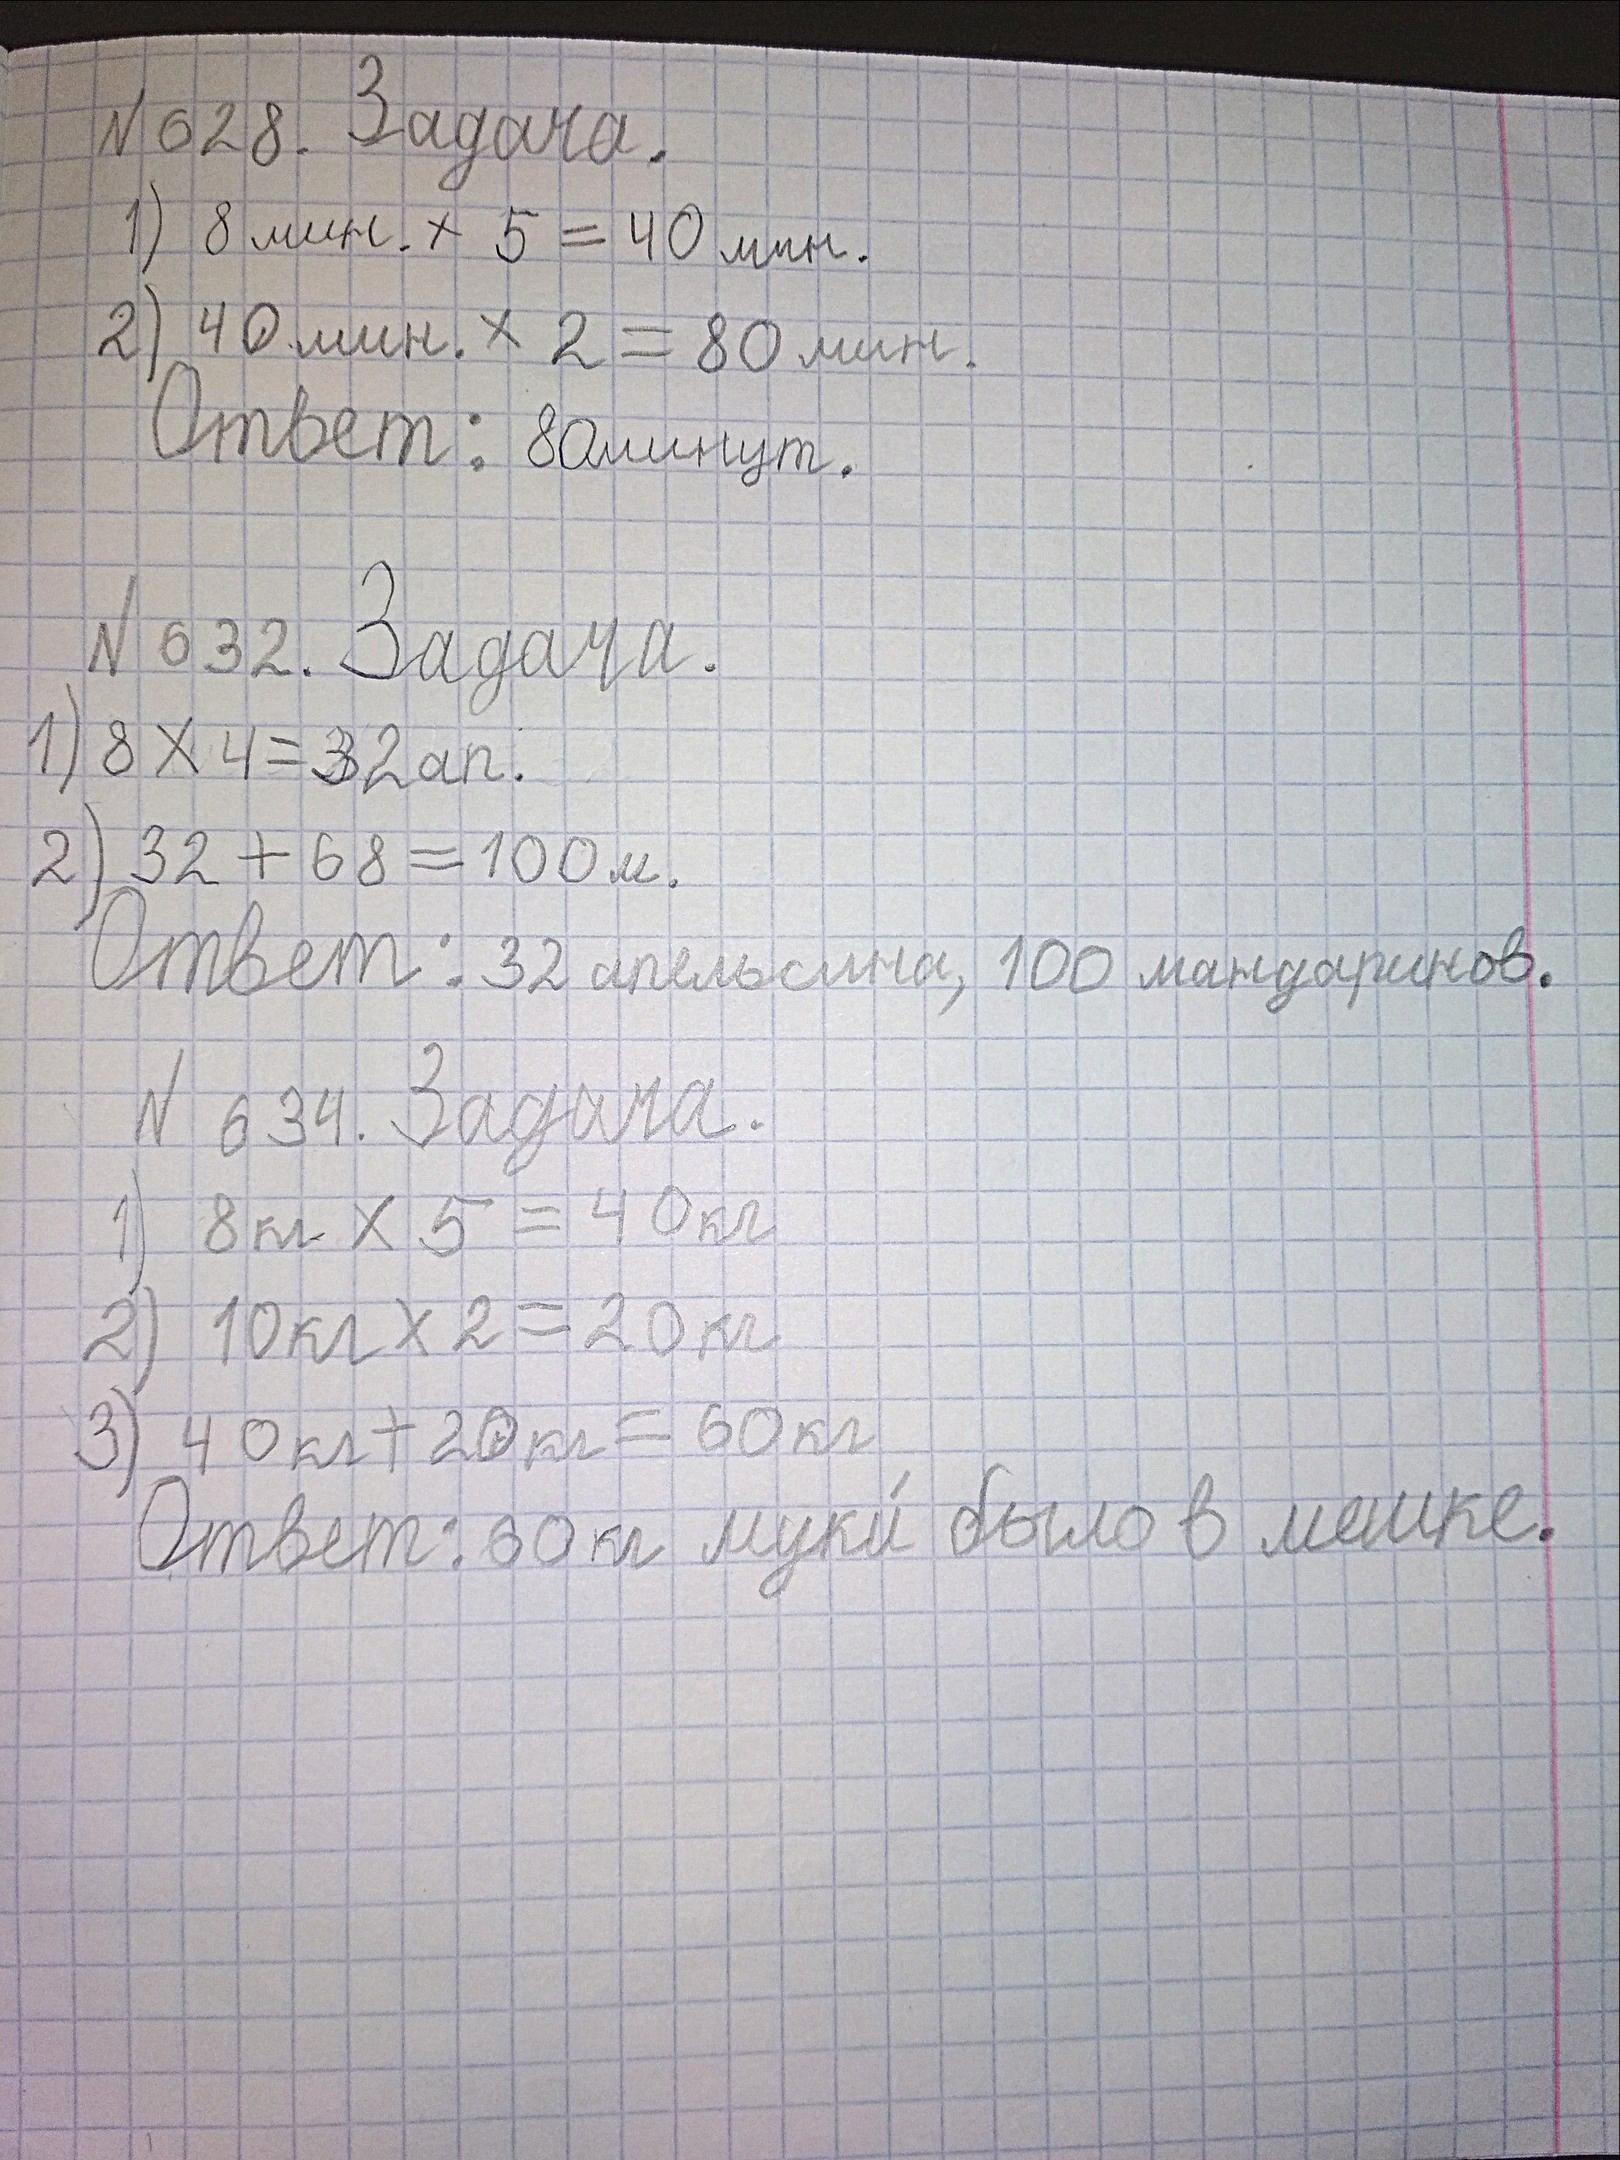 N 628. Задача.
1) 8 мин. × 5 = 40 мин.
2) 40 мин. × 2 = 80 мин.
Ответ: 80 минут.
N 632. Задача.
1) 8 × 4 = 32 ап.
2) 32 + 68 = 100 м.
Ответ: 32 апельсина, 100 мандаринов.
N 634. Задача.
1) 8 кг × 5 = 40 кг
2) 10 кг × 2 = 20 кг
3) 40 кг + 20 кг = 60 кг
Ответ: 60 кг муки́ было в мешке.